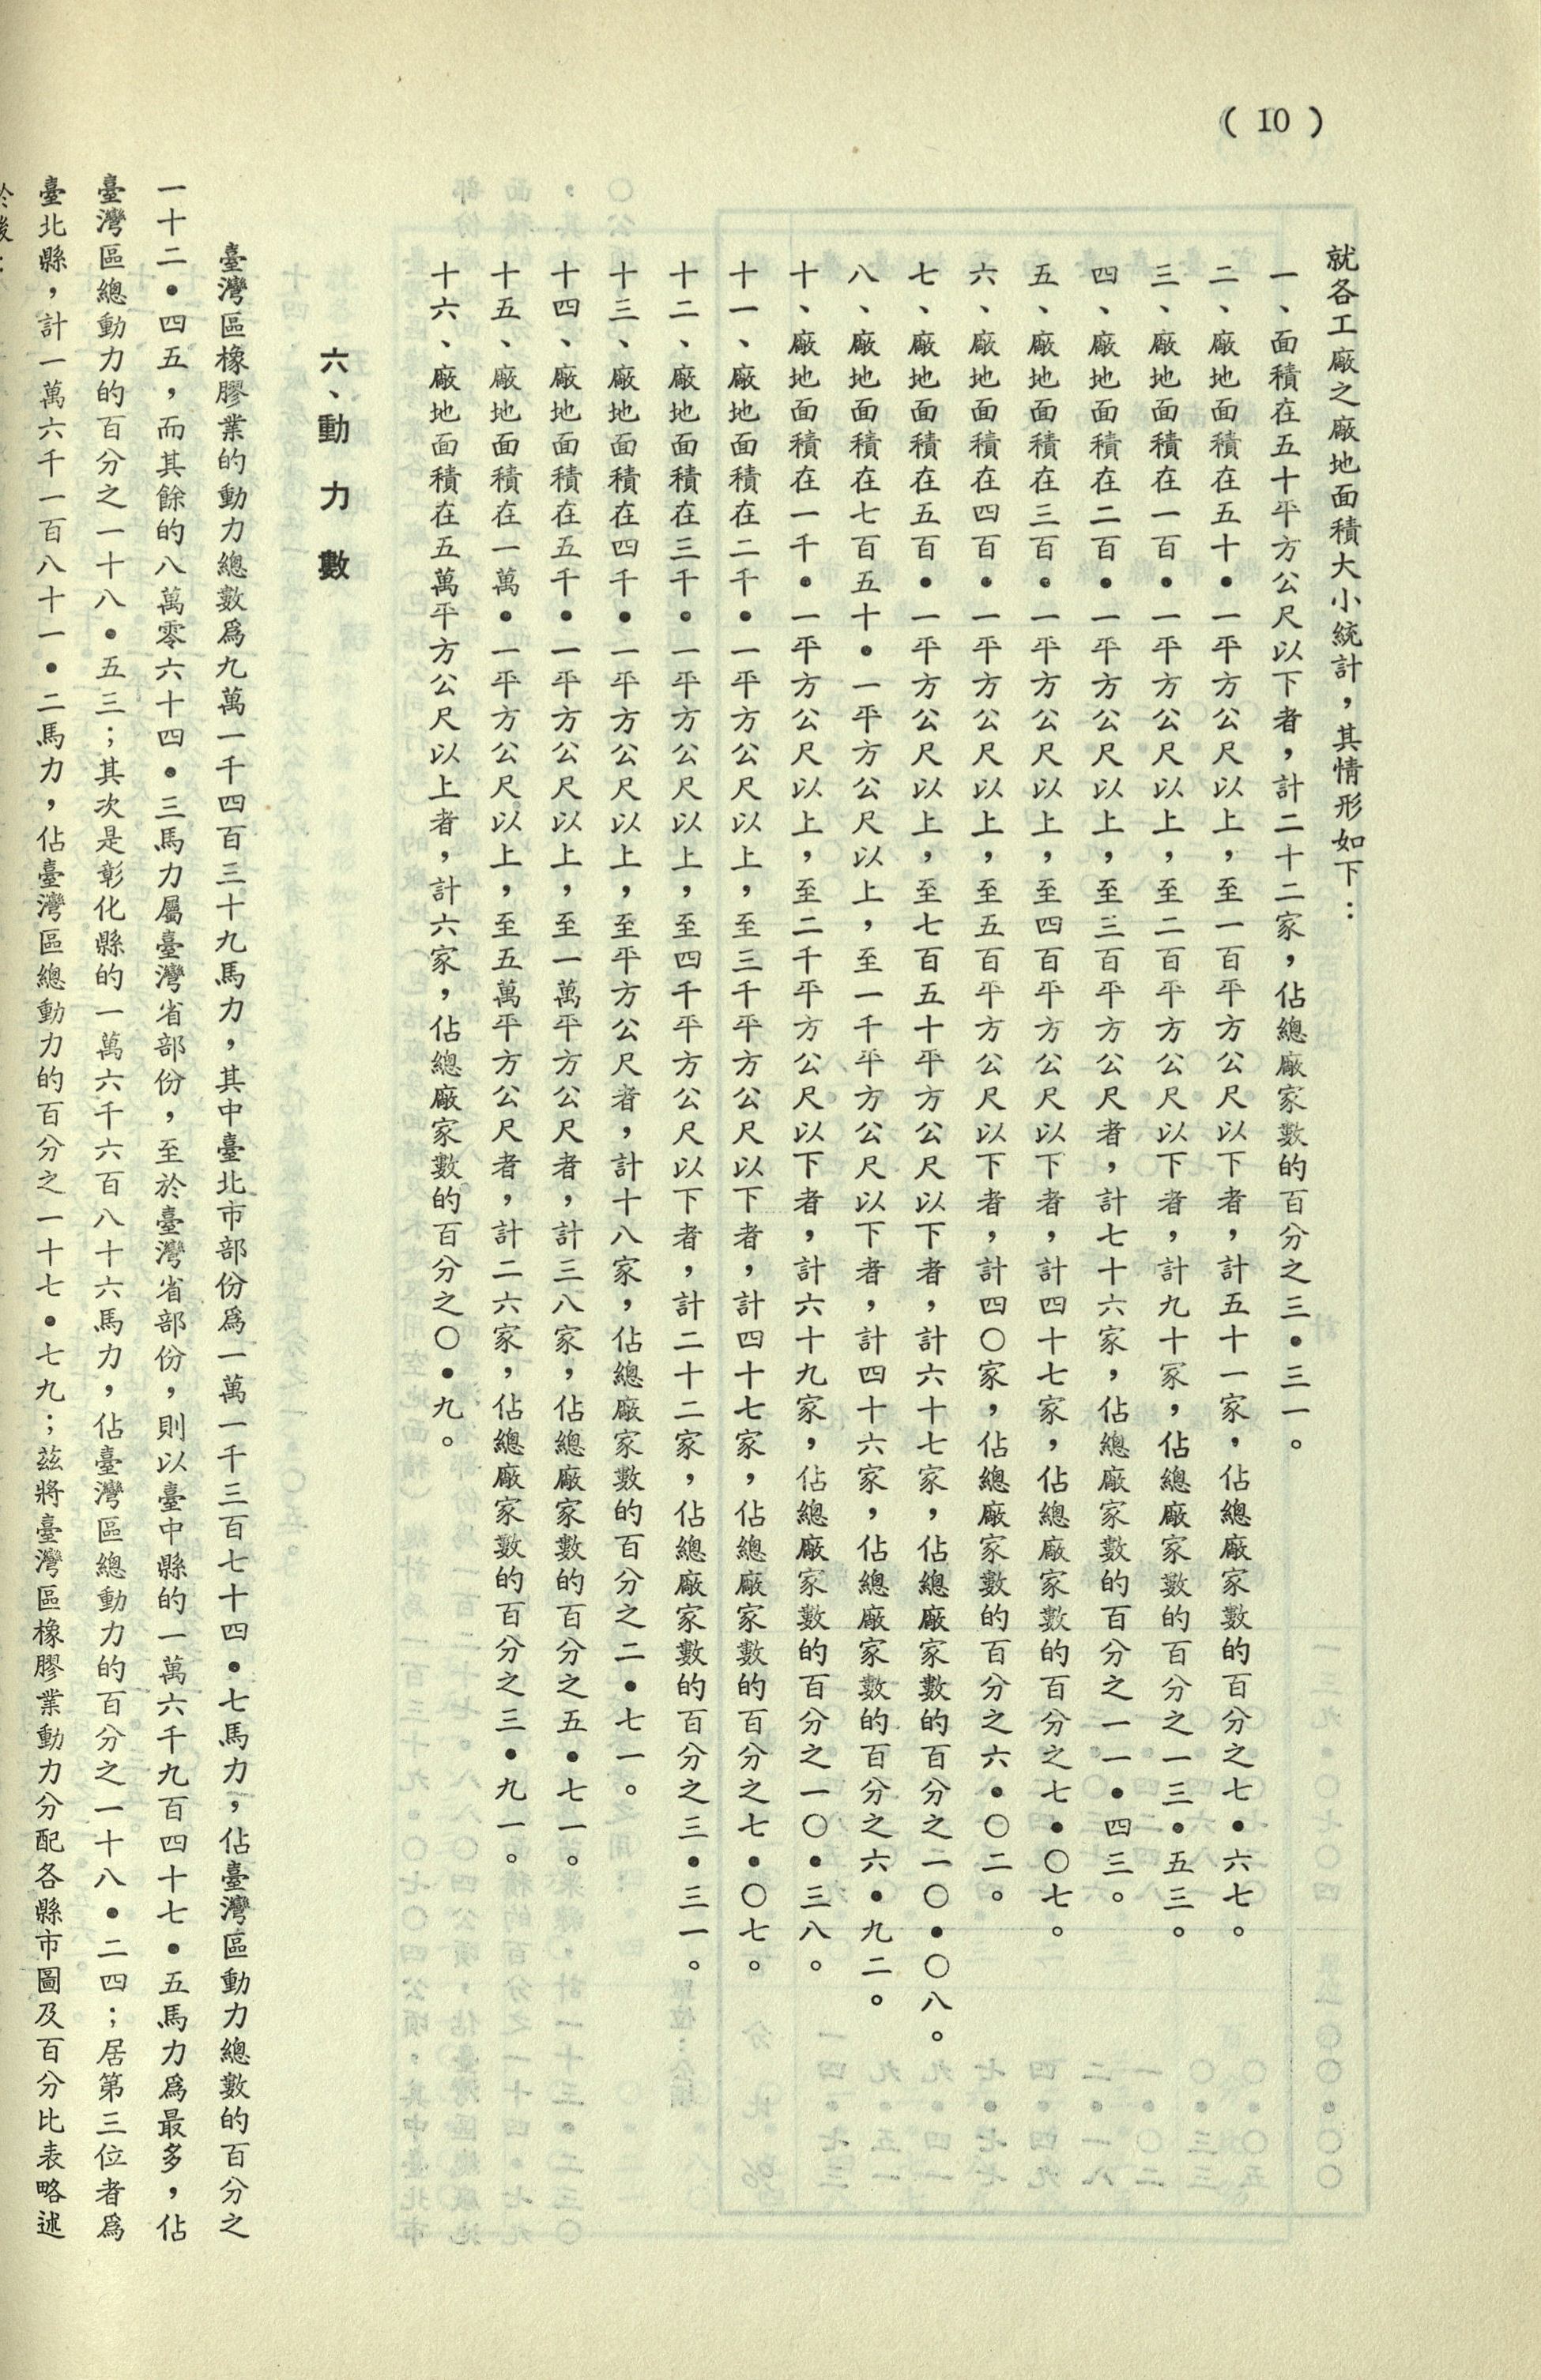 ( 10 )
就各工廠之廠地面積大小統計，其情形如下：
一、面積在五十平方公尺以下者，計二十二家，佔總廠家數的百分之三•三一。
二、廠地面積在五十•一平方公尺以上，至一百平方公尺以下者，計五十一家，佔總廠家數的百分之七•六七。
三、廠地面積在一百•一平方公尺以上，至二百平方公尺以下者，計九十家，佔總廠家數的百分之一三•五三。
四、廠地面積在二百•一平方公尺以上，至三百平方公尺者，計七十六家，佔總廠家數的百分之一一•四三。
五、廠地面積在三百•一平方公尺以上，至四百平方公尺以下者，計四十七家，佔總廠家數的百分之七•〇七。
六、廠地面積在四百•一平方公尺以上，至五百平方公尺以下者，計四〇家，佔總廠家數的百分之六•〇二。
七、廠地面積在五百•一平方公尺以上，至七百五十平方公尺以下者，計六十七家，佔總廠家數的百分之一〇•〇八。
八、廠地面積在七百五十•一平方公尺以上，至一千平方公尺以下者，計四十六家，佔總廠家數的百分之六•九二。
十、廠地面積在一千•一平方公尺以上，至二千平方公尺以下者，計六十九家，佔總廠家數的百分之一〇•三八。
十一、廠地面積在二千•一平方公尺以上，至三千平方公尺以下者，計四十七家，佔總廠家數的百分之七•〇七。
十二、廠地面積在三千•一平方公尺以上，至四千平方公尺以下者，計二十二家，佔總廠家數的百分之三•三一。
十三、廠地面積在四千•一平方公尺以上，至平方公尺者，計十八家，佔總廠家數的百分之二•七一。
十四、廠地面積在五千•一平方公尺以上，至一萬平方公尺者，計三八家，佔總廠家數的百分之五•七一。
十五、廠地面積在一萬•一平方公尺以上，至五萬平方公尺者，計二六家，佔總廠家數的百分之三•九一。
十六、廠地面積在五萬平方公尺以上者，計六家，佔總廠家數的百分之〇•九。
六、動力數
臺灣區橡膠業的動力總數爲九萬一千四百三十九馬力，其中臺北市部份爲一萬一千三百七十四•七馬力，佔臺灣區動力總數的百分之
一十二•四五，而其餘的八萬零六十四•三馬力屬臺灣省部份，至於臺灣省部份，則以臺中縣的一萬六千九百四十七•五馬力爲最多，佔
臺灣區總動力的百分之一十八•五三；其次是彰化縣的一萬六千六百八十六馬力，佔臺灣區總動力的百分之一十八•二四；居第三位者爲
臺北縣，計一萬六千一百八十一•二馬力，佔臺灣區總動力的百分之一十七•七九；茲將臺灣區橡膠業動力分配各縣市圖及百分比表略述
於後：